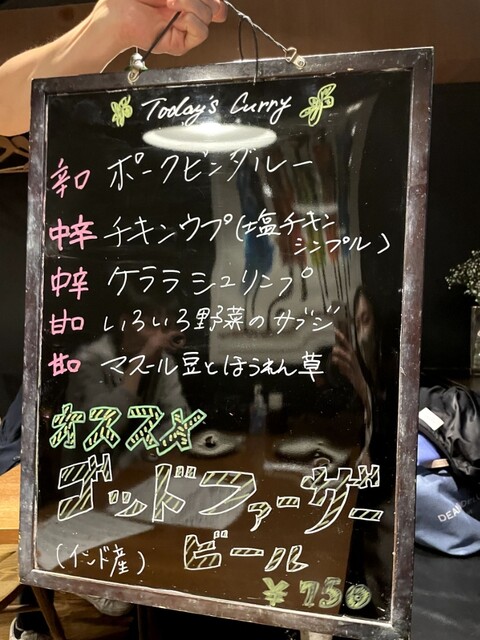 Today's Curry
辛口 ポークビンダルー
中辛 チキンウプ(塩チキン
シンプル)
中辛 ケララシュリンプ
甘口 いろいろ野菜のサブジ
甘口 マスール豆とほうれん草
オススメ
ゴッドファーザー
(インド産) ビール
¥750
DEAN